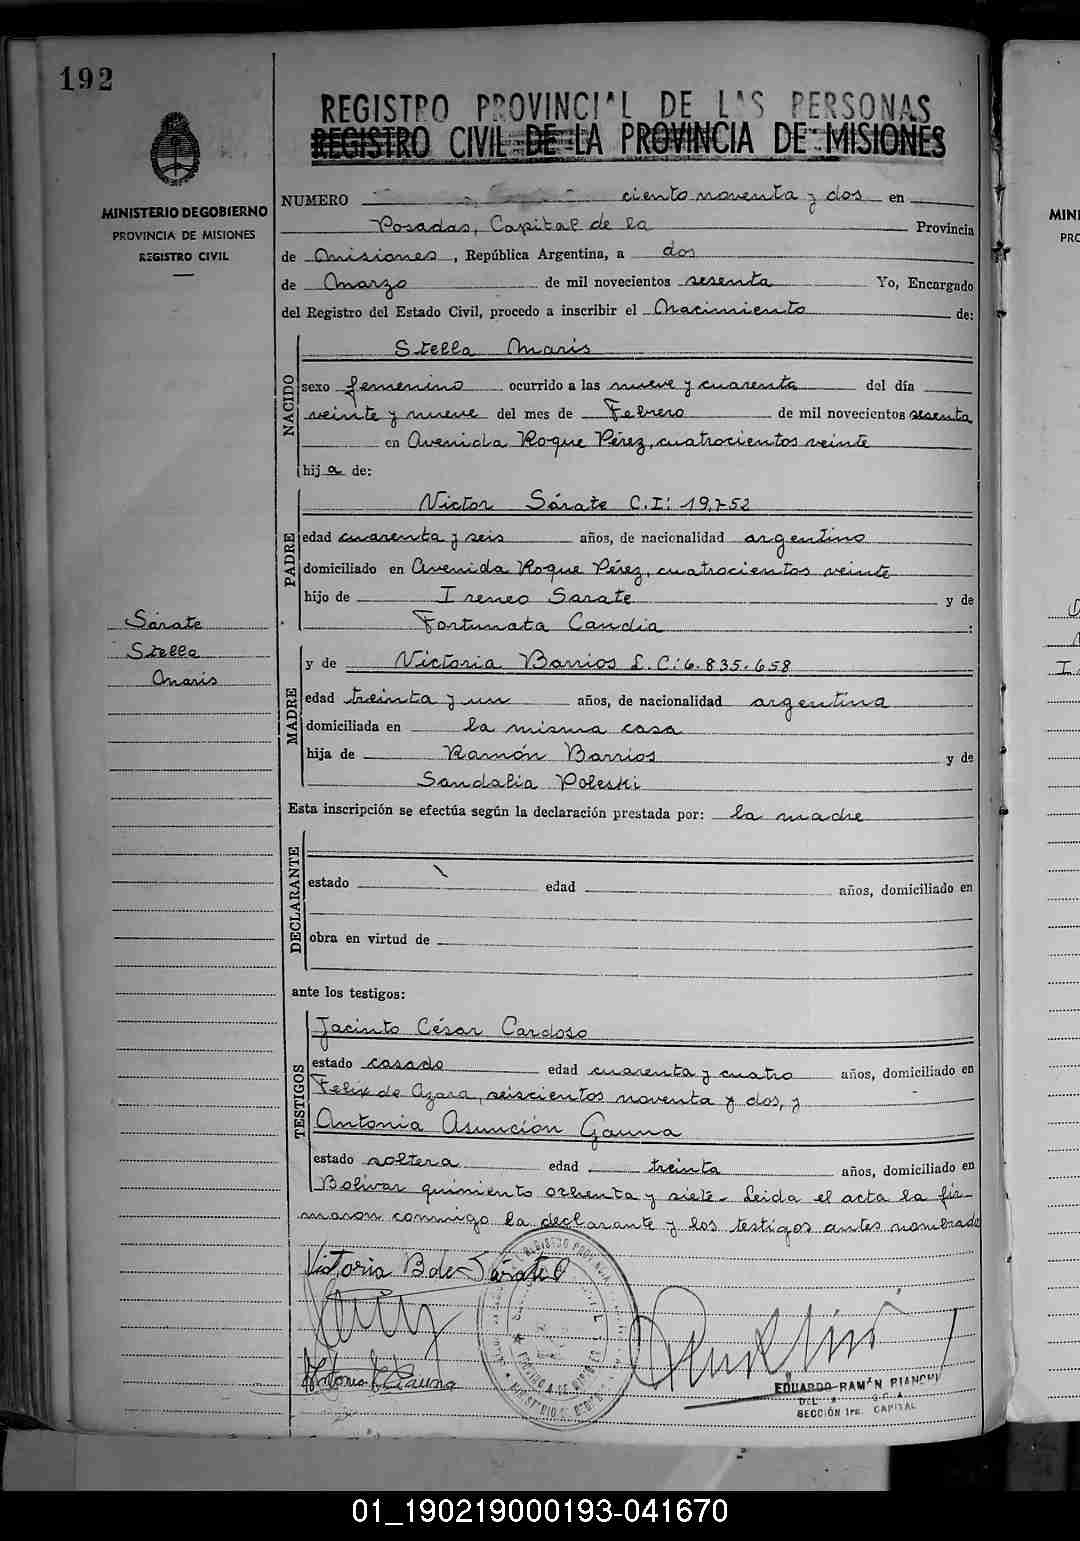 192
REGISTRO PROVINCIAL DE LAS PERSONAS
REGISTRO CIVIL DE LA PROVINCIA DE MISIONES
MINISTERIO DE GOBIERNO
PROVINCIA DE MISIONES
REGISTRO CIVIL
NUMERO ciento noventa y dos en
Posadas, Capital de la Provincia
de Misiones, República Argentina, a dos
de Marzo de mil novecientos sesenta Yo, Encargado
del Registro del Estado Civil, procedo a inscribir el Nacimiento de:
NACIDO
Stella Maris
sexo femenino ocurrido a las nueve y cuarenta del día
veinte y nueve del mes de Febrero de mil novecientos sesenta
en Avenida Roque Pérez, cuatrocientos veinte
hija de:
PADRE
Victor Sárate C.I: 19,752
edad cuarenta y seis años, de nacionalidad argentino
domiciliado en Avenida Roque Pérez, cuatrocientos veinte
hijo de Ireneo Sarate y de
Fortunata Candia :
Sárate
Stella
Maris
MADRE
y de Victoria Barrios L.C: 6.835.658
edad treinta y un años, de nacionalidad argentina
domiciliada en la misma casa
hija de Ramón Barrios y de
Sandalia Poleski
Esta inscripción se efectúa según la declaración prestada por: la madre
DECLARANTE
estado edad años, domiciliado en
obra en virtud de
ante los testigos:
TESTIGOS
Jacinto César Cardoso
estado casado edad cuarenta y cuatro años, domiciliado en
Felix de Azara, seiscientos noventa y dos, y
Antonia Asunción Gauna
estado soltera edad treinta años, domiciliado en
Bolívar quiniento ochenta y siete- Leida el acta la fir-
maron conmigo la declarante y los testigos antes nombrado
Victoria B de Sarate
Antonia A Gauna
EDUARDO RAMÓN BIANCHI
SECCIÓN 1ra. CAPITAL
01_190219000193-041670